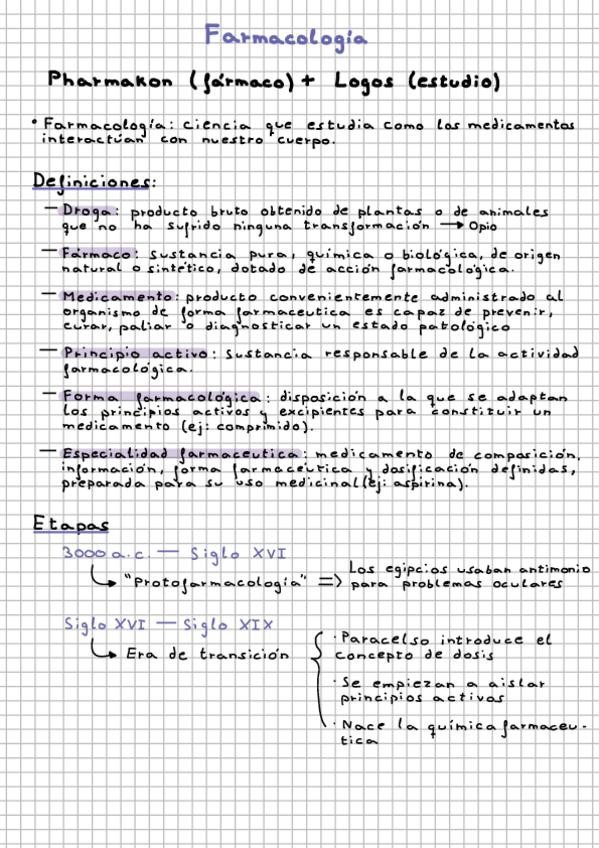 Farmacología
Pharmakon (fármaco) + Logos (estudio)
• Farmacología: ciencia que estudia como los medicamentos
interactúan con nuestro cuerpo.
Definiciones:
— Droga: producto bruto obtenido de plantas o de animales
que no ha sufrido ninguna transformación → Opio
— Fármaco: sustancia pura, química o biológica, de origen
natural o sintético, dotado de acción farmacológica.
— Medicamento: producto convenientemente administrado al
organismo de forma farmaceutica es capaz de prevenir,
curar, paliar o diagnosticar un estado patológico
— Principio activo: Sustancia responsable de la actividad
farmacológica.
— Forma farmacológica: disposición a la que se adaptan
los principios activos y excipientes para constituir un
medicamento (ej: comprimido).
— Especialidad farmaceutica: medicamento de composición,
información, forma farmaceutica y dosificación definidas,
preparada para su uso medicinal (ej: aspirina).
Etapas
3000 a.c. — Siglo XVI
↳ "Protofarmacología" => Los egipcios usaban antimonio
para problemas oculares
Siglo XVI — Siglo XIX
↳ Era de transición
· Paracelso introduce el
concepto de dosis
· Se empiezan a aislar
principios activos
· Nace la química farmaceu-
tica